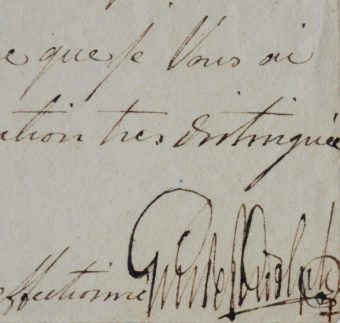 que je Vous ai
tion tres distinguée
affectionné